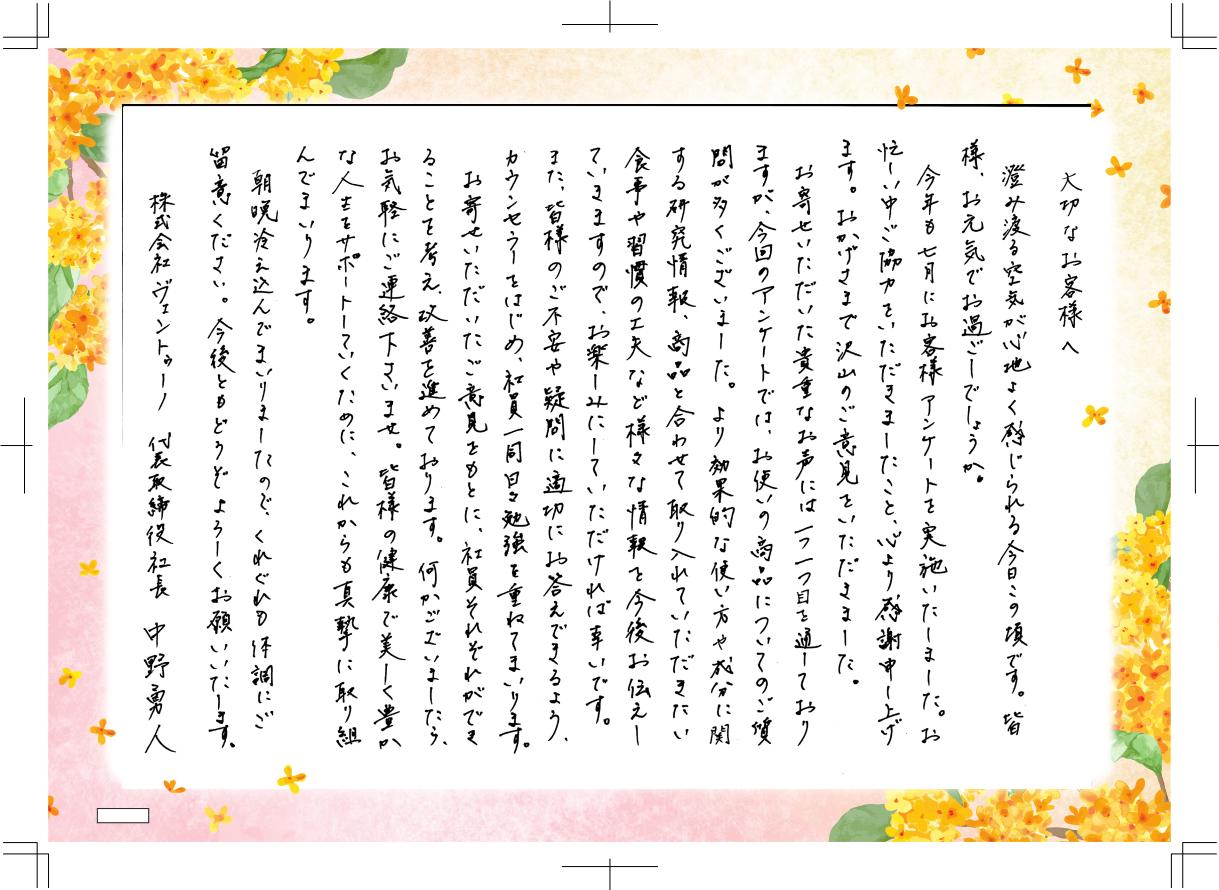 大切なお客様へ
澄み渡る空気が心地よく感じられる今日この頃です。皆
様、お元気でお過ごしでしょうか。
今年も七月にお客様アンケートを実施いたしました。お
忙しい中ご協力をいただきましたこと、心より感謝申し上げ
ます。おかげさまで沢山のご意見をいただきました。
お寄せいただいた貴重なお声には一つ一つ目を通しており
ますが、今回のアンケートでは、お使いの商品についてのご質
問が多くございました。より効果的な使い方や成分に関
する研究情報、商品と合わせて取り入れていただきたい
食事や習慣の工夫など様々な情報を今後お伝えし
ていきますので、お楽しみにしていただければ幸いです。
また、皆様のご不安や疑問に適切にお答えできるよう、
カウンセラーをはじめ、社員一同日々勉強を重ねてまいります。
お寄せいただいたご意見をもとに、社員それぞれができ
ることを考え、改善を進めております。何かございましたら、
お気軽にご連絡下さいませ。皆様の健康で美しく豊か
な人生をサポートしていくために、これからも真摯に取り組
んでまいります。
朝晩冷え込んでまいりましたので、くれぐれも体調にご
留意ください。今後ともどうぞよろしくお願いいたします。
株式会社ヴェントゥーノ 代表取締役社長 中野勇人